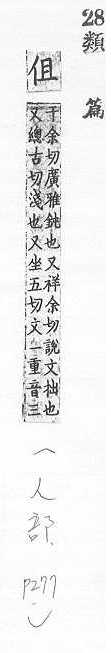 28類篇
伹
千余切廣雅鈍也又祥余切說文拙也
又總古切淺也又坐五切文一重音三
(人部, P277)